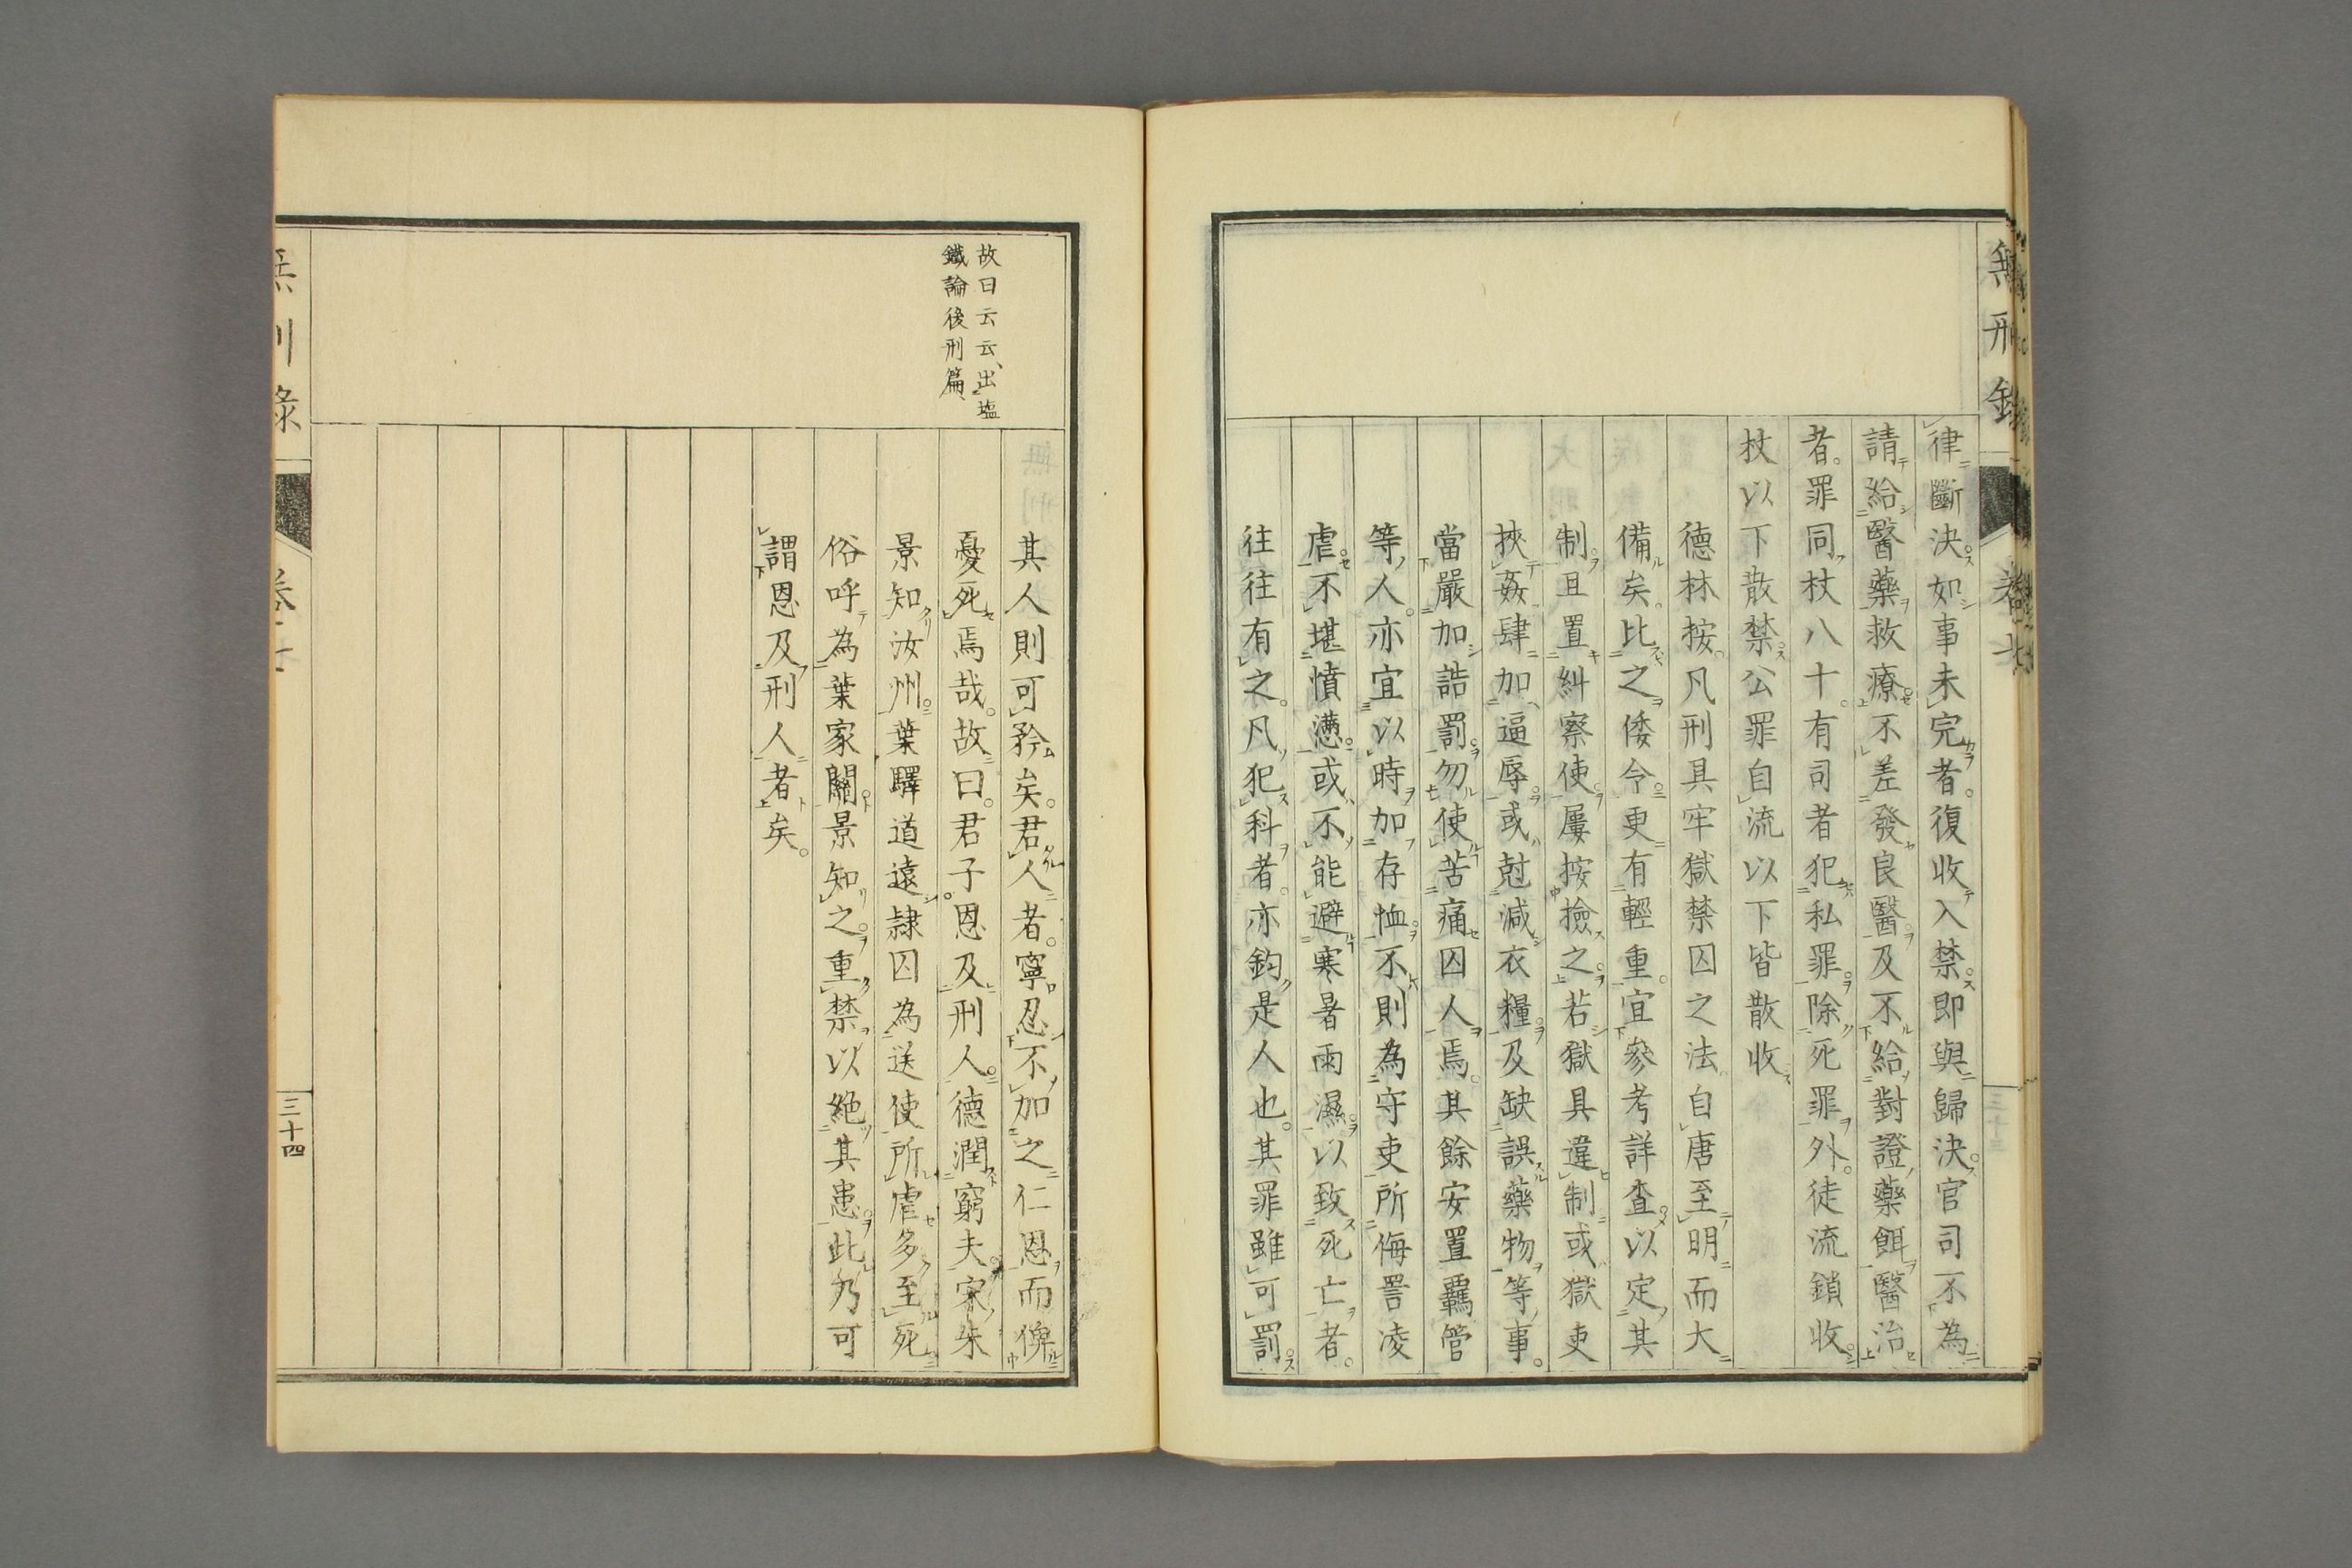 無刑錄
卷十七
律斷決如事未完者。復收入禁即與歸決官司不為
請給醫藥救療不差發良醫及不給對證藥餌醫治
者。罪同杖八十。有司者犯私罪除死罪外。徒流鎖收
杖以下散禁公罪自流以下皆散收
德林按。凡刑具牢獄禁囚之法自唐至明而大
備矣。比之倭令更有輕重。宜參考詳査以定其
制且置糾察使屢按撿之若獄具違制或獄吏
挾姦肆加逼辱或尅減衣糧及缺誤藥物等事。
當嚴加誥罰勿使苦痛囚人焉。其餘安置覊管
等人。亦宜以時加存恤不則為守吏所侮詈凌
虐不堪憤懣或不能避寒暑雨濕以致死亡者。
往往有之。凡犯科者。亦鈞是人也。其罪雖可罰
故曰云云、出塩
鐵論後刑篇、
其人則可矜矣。君人者。寧忍不加之仁恩而俾
憂死焉哉。故曰。君子恩及刑人。德潤窮夫。宋朱
景知汝州。葉驛道遠隷囚為送使所虐多至死
俗呼為葉家關景知之重禁以絶其患此乃可
謂恩及刑人者矣。
三十四